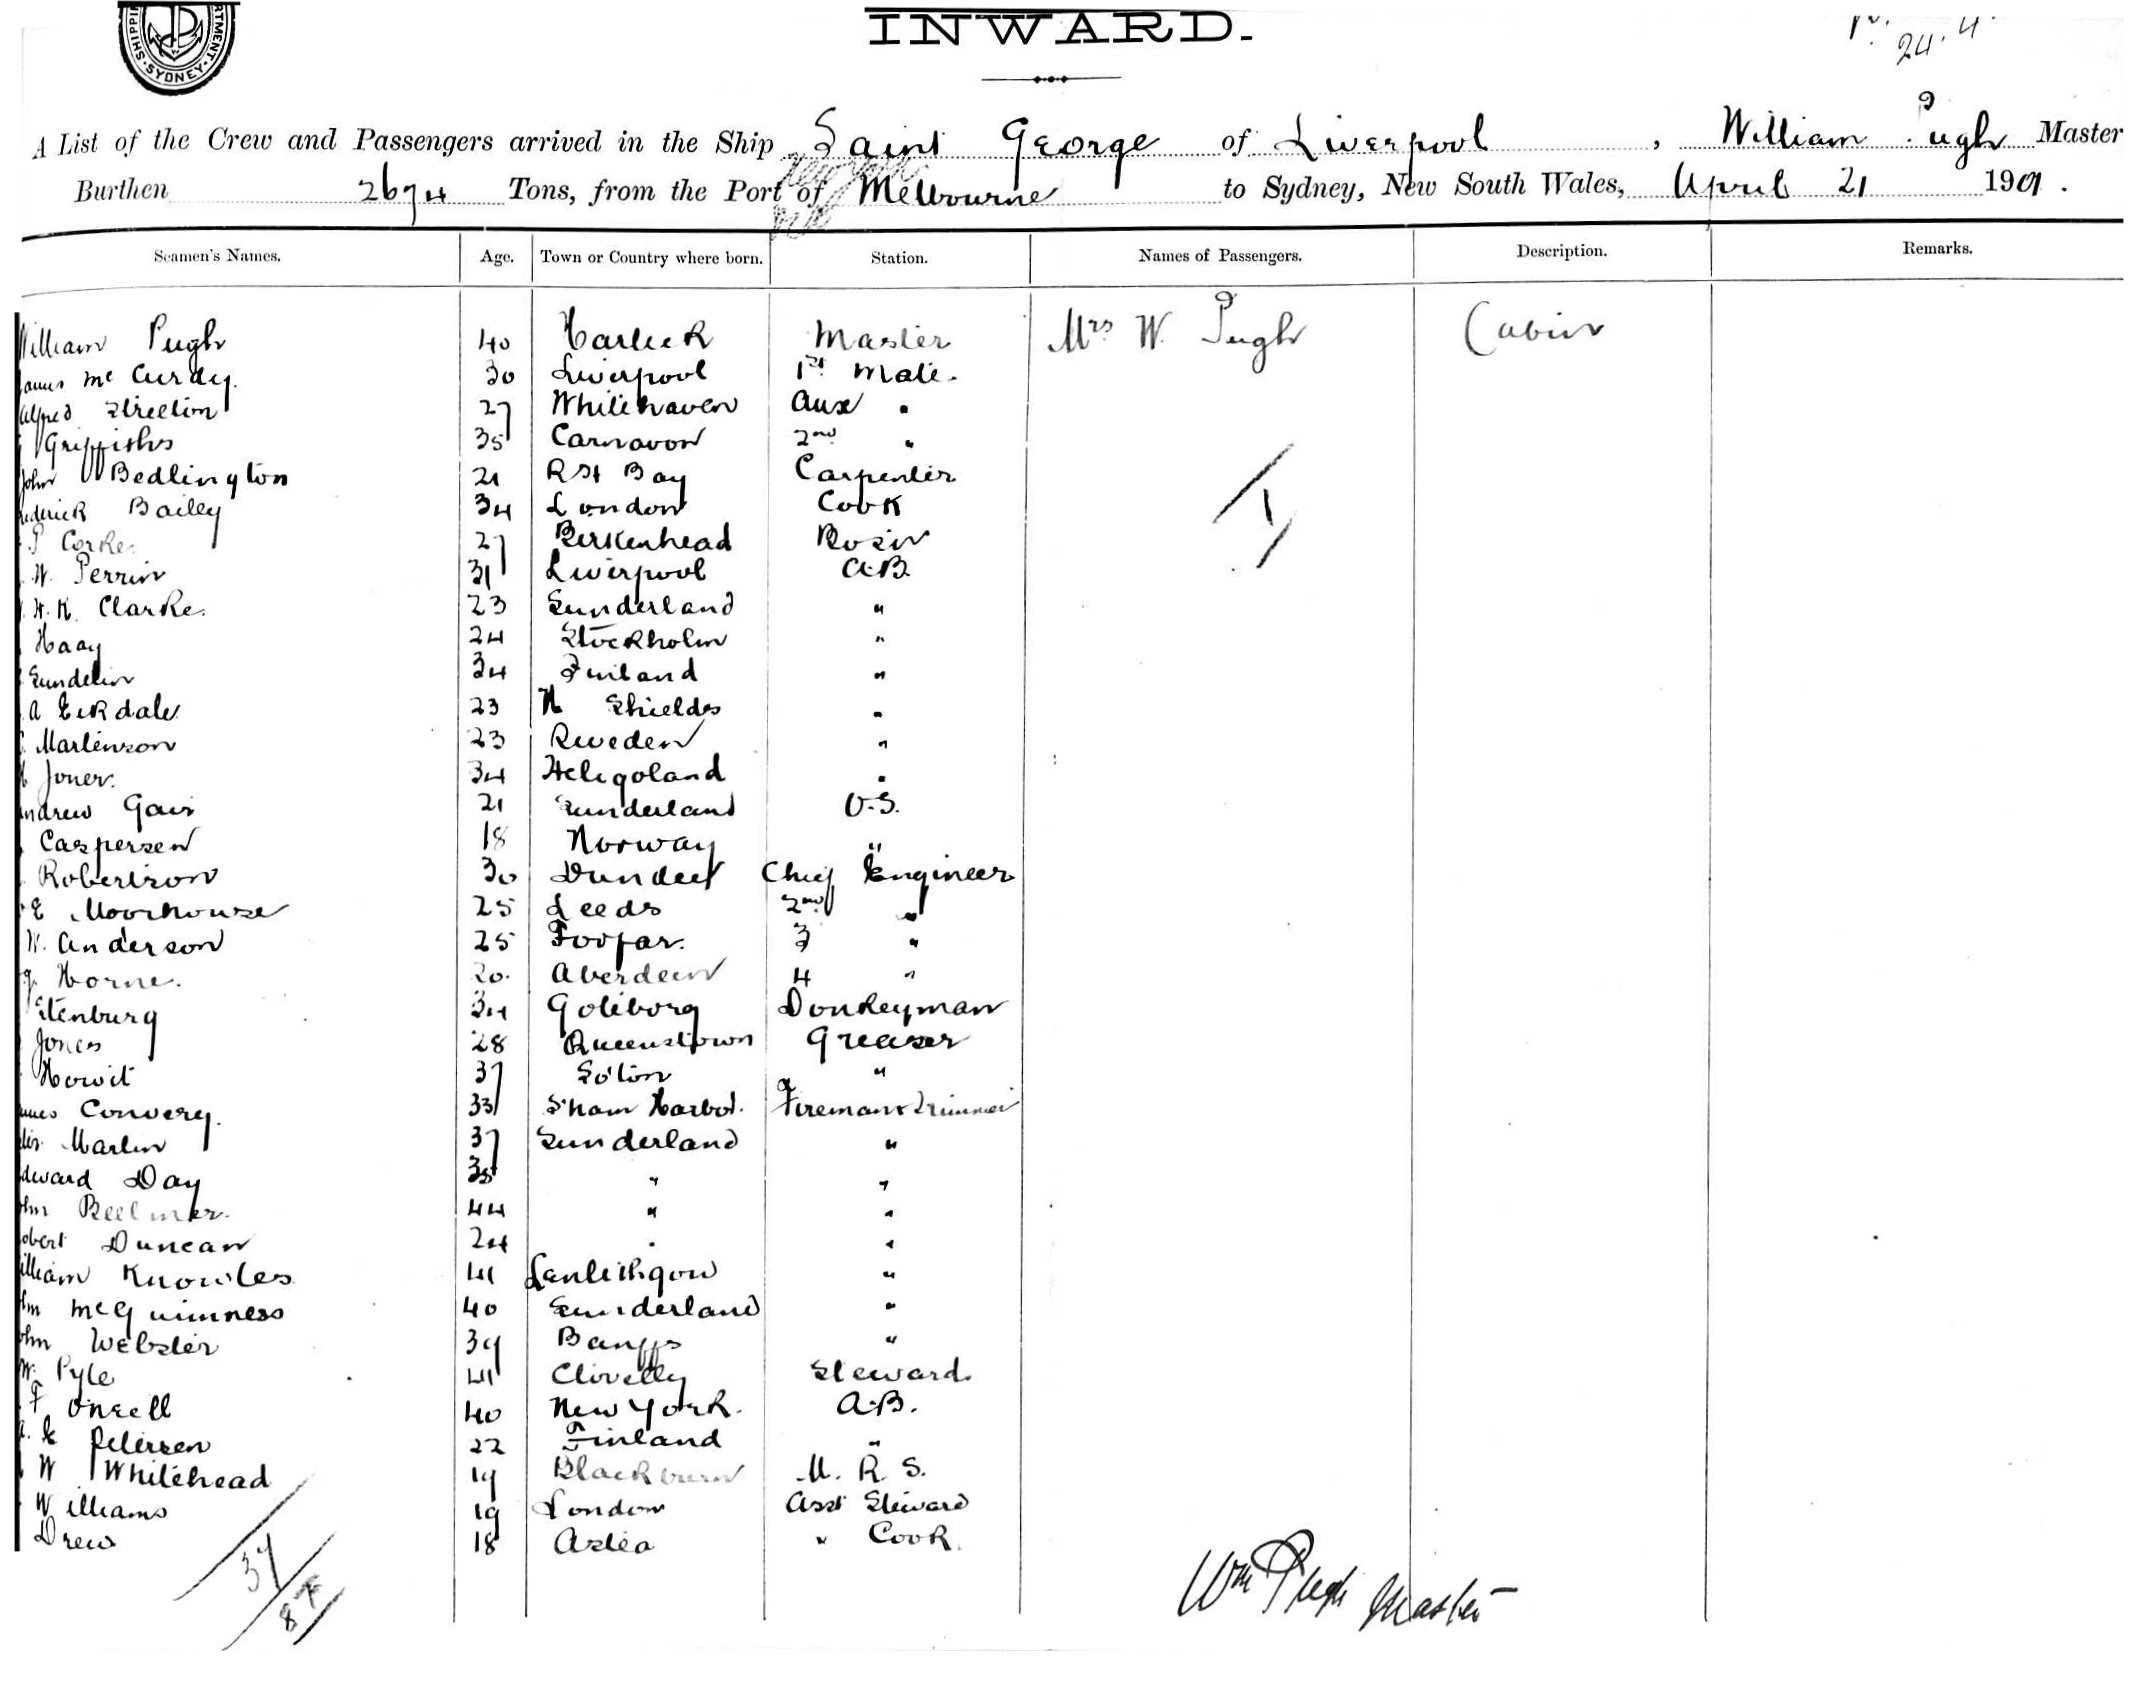 SHIPPING DEPARTMENT. SYDNEY.
INWARD.
24.4.
A List of the Crew and Passengers arrived in the Ship Saint George of Liverpool, William Pugh Master
Burthen 2674 Tons, from the Port of Melbourne to Sydney, New South Wales, April 21 1901.
Seamen's Names. Age. Town or Country where born. Station. Names of Passengers. Description. Remarks.
William Pugh 40 Harlech Master Mrs W. Pugh Cabin
James McCurdy. 30 Liverpool 1st Mate.
Alfred Streeton 27 Whitehaven Aux "
Griffiths 35 Carnavon 2nd "
John Bedlington 21 RH Bay Carpenter
ederick Bailey 34 London Cook
P Corke. 27 Berkenhead Bosin
W. Perrin 31 Liverpool A.B.
H. K. Clarke. 23 Sunderland "
Haag 24 Stockholm "
Sundelin 34 Finland "
A Eskdale 23 N Shields "
Martenson 23 Sweden "
Joner. 34 Heligoland "
ndrew Gair 21 Sunderland O.S.
Caspersen 18 Norway "
Robertson 30 Dundee Chief Engineer
E Moorhouse 25 Leeds 2nd "
W. Anderson 25 Forfar. 3 "
g. Horne. 20. Aberdeen 4 "
Stenburg 34 Goteborg Donkeyman
Jones 28 Queenstown Greaser
Howit 37 So'ton "
ames Convery. 33 S'ham Harbor. Fireman & Trimmer
Martin 37 Sunderland "
dward Day 35 " "
ohn 44 " "
obert Duncan 24 " "
illiam Knowles 41 Lenlithgow "
ohn McGuinness 40 Sunderland "
ohn Webster 39 Banffs "
W. Pyle 41 Clovelly Steward.
F O'Neell 40 New York. A.B.
E Petersen 22 Finland "
W Whitehead 19 Blackburn M. R. S.
Williams 19 London Asst Steward
Drew 18 " Cook.
37
Wm Pugh Master